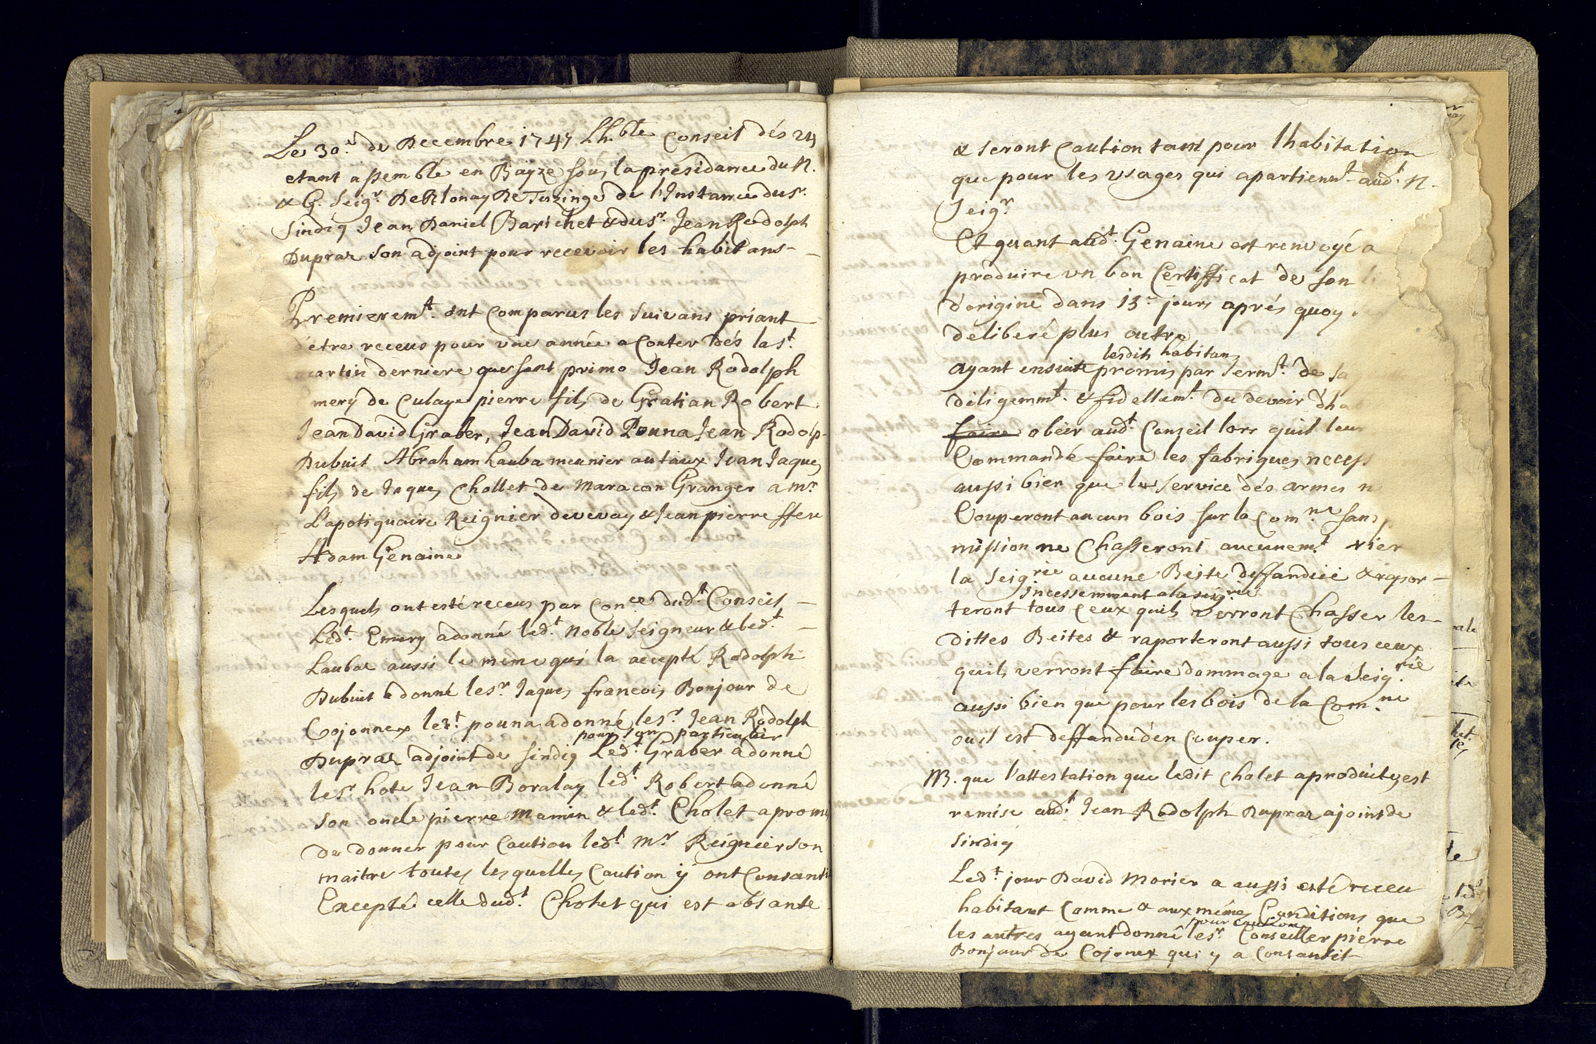 Le 30.e de Decembre 1747 Lh.ble Conseil dés 24
etant assemblé en Bayze sous la présidance du N.
& G. Seigr. De Blonay De Tuzinge de l'Instance du Sr.
Sindiq Jean Daniel Barichet & du Sr. Jean Rodolph
Dupraz son adjoint pour recevoir les habitans
Premierem.t ont comparus les suivans priant
etre receus pour une année a Conter dés la St.
martin derniere que sont primo Jean Rodolph
mery de Culaye pierre fils de Gratian Robert
Jean David Graber, Jean David Pouna Jean Rodolp
Dubuit Abraham Lauba meunier au taux Jean Jaques
fils de Jaques Chollet de Maracon Granger a mr.
L'apotiquaire Reignier de vevay & Jean pierre ffeu
Adam Genaine
Lesquels ont esté receus par Con.ce dud.t Conseil
Led.t Emery a donné led.t Noble Seigneur & led.t
Laubaz aussi le meme qui la accepté Rodolph
Dubuit a donné le Sr. Jaques francois Bonjour de
Cojonnex led.t pouna a donné le Sr. Jean Rodolph
pour son particulier
Dupraz adjoint de Sindiq Led.t Graber a donné
le Sr. hote Jean Boralay led.t Robert a donné
son oncle pierre Mamin & led.t Cholet a promis
de donner pour Caution led.t Mr. Reignier son
maitre toutes lesquelles Caution y ont Consanti
Excepté celle dud.t Cholet qui est absante
& seront Caution tant pour lhabitation
que pour les usages qui apartienn.t aud.t N.
Seigr.
Et quant aud.t Genaine est renvoyé a
produire un bon Certifficat de son
d'origine dans 15 jours aprés quoy
deliberé plus outre
lesdits habitans
ayant ensuite promis par Serm.t de sa
diligemm.t & fidellem.t du devoir dha
faire obeir aud.t Conseil lors quil leur
Commandé faire les fabriques necess
aussi bien que le service dés armes n
Couperont aucun bois sur la Com.ne sans p
mission ne Chasseront aucunem.t rier
la Seig.rie aucune Beite deffandüe & rapor-
Incessemment a la seigrie
teront tous Ceux quils verront Chasser les
dittes Beites & raporteront aussi tous ceux
quils verront faire dommage a la Seig.rie
aussi bien que pour les bois de la Com.ne
ou il est deffandu d'en Couper.
NB. que l'attestation que ledit Cholet a produite est
remise aud.t Jean Rodolph Dupraz ajoint de
Sindiq
Led.t jour David Morier a aussi esté receu
habitant Comme & aux mémes Conditions que
pour Caution
les autres ayant donné le Sr. Conseiller pierre
Bonjour de Cojonex qui y a Consantit